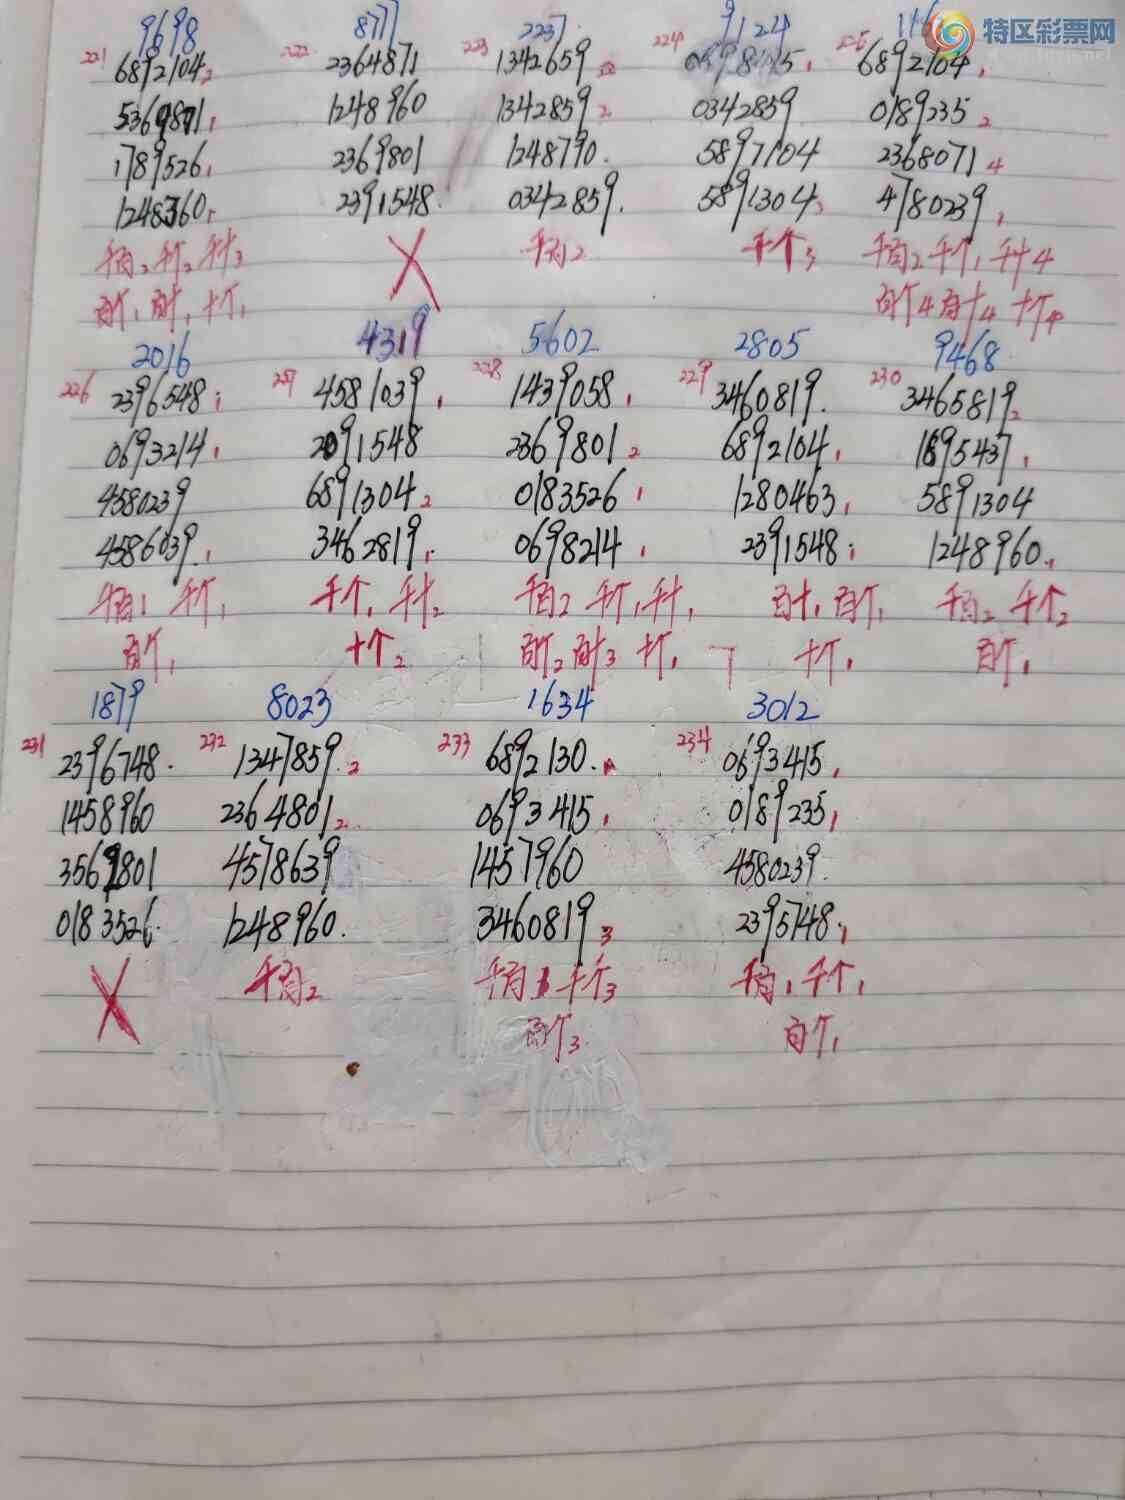 特区彩票网
9698 8777 2237 9124
221 6892104 2 222 2364871 223 1342659 224 225 6892104 1
5369871 1 1248960 1342859 2 0342859 0189235 2
1789526 1 2369801 1248790. 5897104 2368071 4
1248360 1 2391548. 0342859. 5891304 3 4780239 1
千百2 千个2 千十3 X 千百2 千个3 千百2 千个1 千十4
百个1 百十1 十个1 百个4 百十4 十个4
2016 4319 5602 2805 9468
226 2396548 1 227 4581039 1 228 1439058 1 229 3460819. 230 3465819 2
0693214 1 2091548 2369801 2 6892104 1 1895437 1
4580239 6891304 2 0183526 1 1280463 1 5891304
4586039. 1 3462819 1 0698214 1 2391548 1 1248960. 1
千百1 千个1 千个1 千十2 千百2 千个1 千十1 百十1 百个1 千百2 千个2
百个1 十个2 百个2 百十3 十个1 十个1 百个1
1879 8023 1634 3012
231 2396748. 232 1347859. 2 233 6892130. 234 0693415 1
1458960 2364801 2 0693415 1 0189235 1
3569801 4578639 1457960 4580239.
0183526. 1248960. 3460819 3 2395748 1
X 千百2 千百1 千个3 千百1 千个1
百个3 百个1